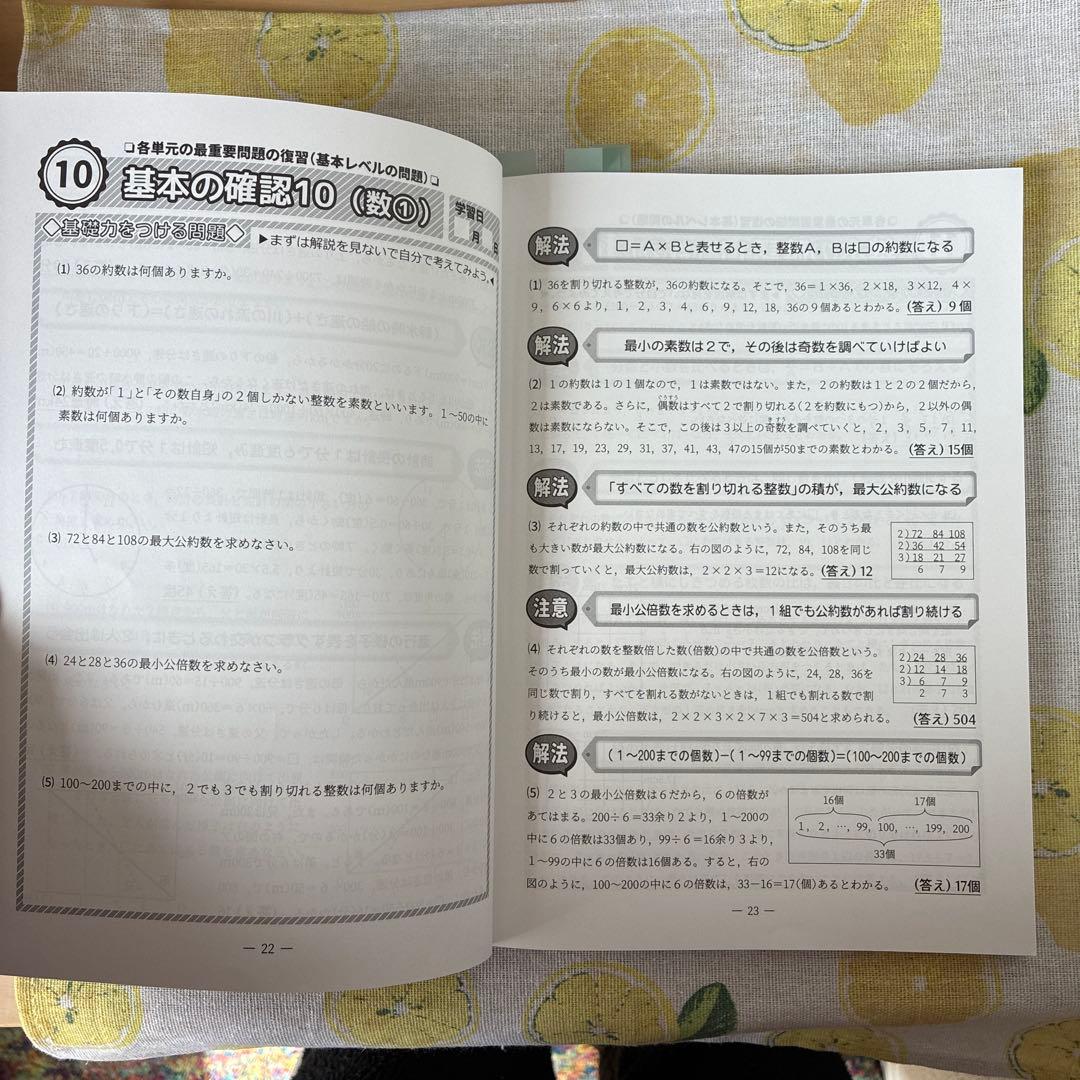 10
❏各単元の最重要問題の復習（基本レベルの問題）❏
基本の確認10（数①）
学習日
月 日
◇基礎力をつける問題◇
▶まずは解説を見ないで自分で考えてみよう。◀
(1) 36の約数は何個ありますか。
(2) 約数が「1」と「その数自身」の2個しかない整数を素数といいます。1～50の中に
素数は何個ありますか。
(3) 72と84と108の最大公約数を求めなさい。
(4) 24と28と36の最小公倍数を求めなさい。
(5) 100～200までの中に，2でも3でも割り切れる整数は何個ありますか。
― 22 ―
解法 □＝A×Bと表せるとき，整数A，Bは□の約数になる
(1) 36を割り切れる整数が，36の約数になる。そこで，36＝1×36，2×18，3×12，4×
9，6×6より，1，2，3，4，6，9，12，18，36の9個あるとわかる。(答え) 9個
解法 最小の素数は2で，その後は奇数を調べていけばよい
(2) 1の約数は1の1個なので，1は素数ではない。また，2の約数は1と2の2個だから，
ぐうすう
2は素数である。さらに，偶数はすべて2で割り切れる(2を約数にもつ)から，2以外の偶
き すう
数は素数にならない。そこで，この後は3以上の奇数を調べていくと，2，3，5，7，11，
13，17，19，23，29，31，37，41，43，47の15個が50までの素数とわかる。(答え) 15個
解法 「すべての数を割り切れる整数」の積が，最大公約数になる
(3) それぞれの約数の中で共通の数を公約数という。また，そのうち最
も大きい数が最大公約数になる。右の図のように，72，84，108を同じ
数で割っていくと，最大公約数は，2×2×3＝12になる。(答え) 12
2)72 84 108
2)36 42 54
3)18 21 27
6 7 9
注意 最小公倍数を求めるときは，1組でも公約数があれば割り続ける
(4) それぞれの数を整数倍した数(倍数)の中で共通の数を公倍数という。
そのうち最小の数が最小公倍数になる。右の図のように，24，28，36を
同じ数で割り，すべてを割れる数がないときは，1組でも割れる数で割
り続けると，最小公倍数は，2×2×3×2×7×3＝504と求められる。 (答え) 504
2)24 28 36
2)12 14 18
3) 6 7 9
2 7 3
解法 (1～200までの個数)−(1～99までの個数)＝(100～200までの個数)
(5) 2と3の最小公倍数は6だから，6の倍数が
あてはまる。200÷6＝33余り2より，1～200の
中に6の倍数は33個あり，99÷6＝16余り3より，
1～99の中に6の倍数は16個ある。すると，右の
図のように，100～200の中に6の倍数は，33−16＝17(個)あるとわかる。 (答え) 17個
16個 17個
1，2，…，99，100，…，199，200
33個
― 23 ―